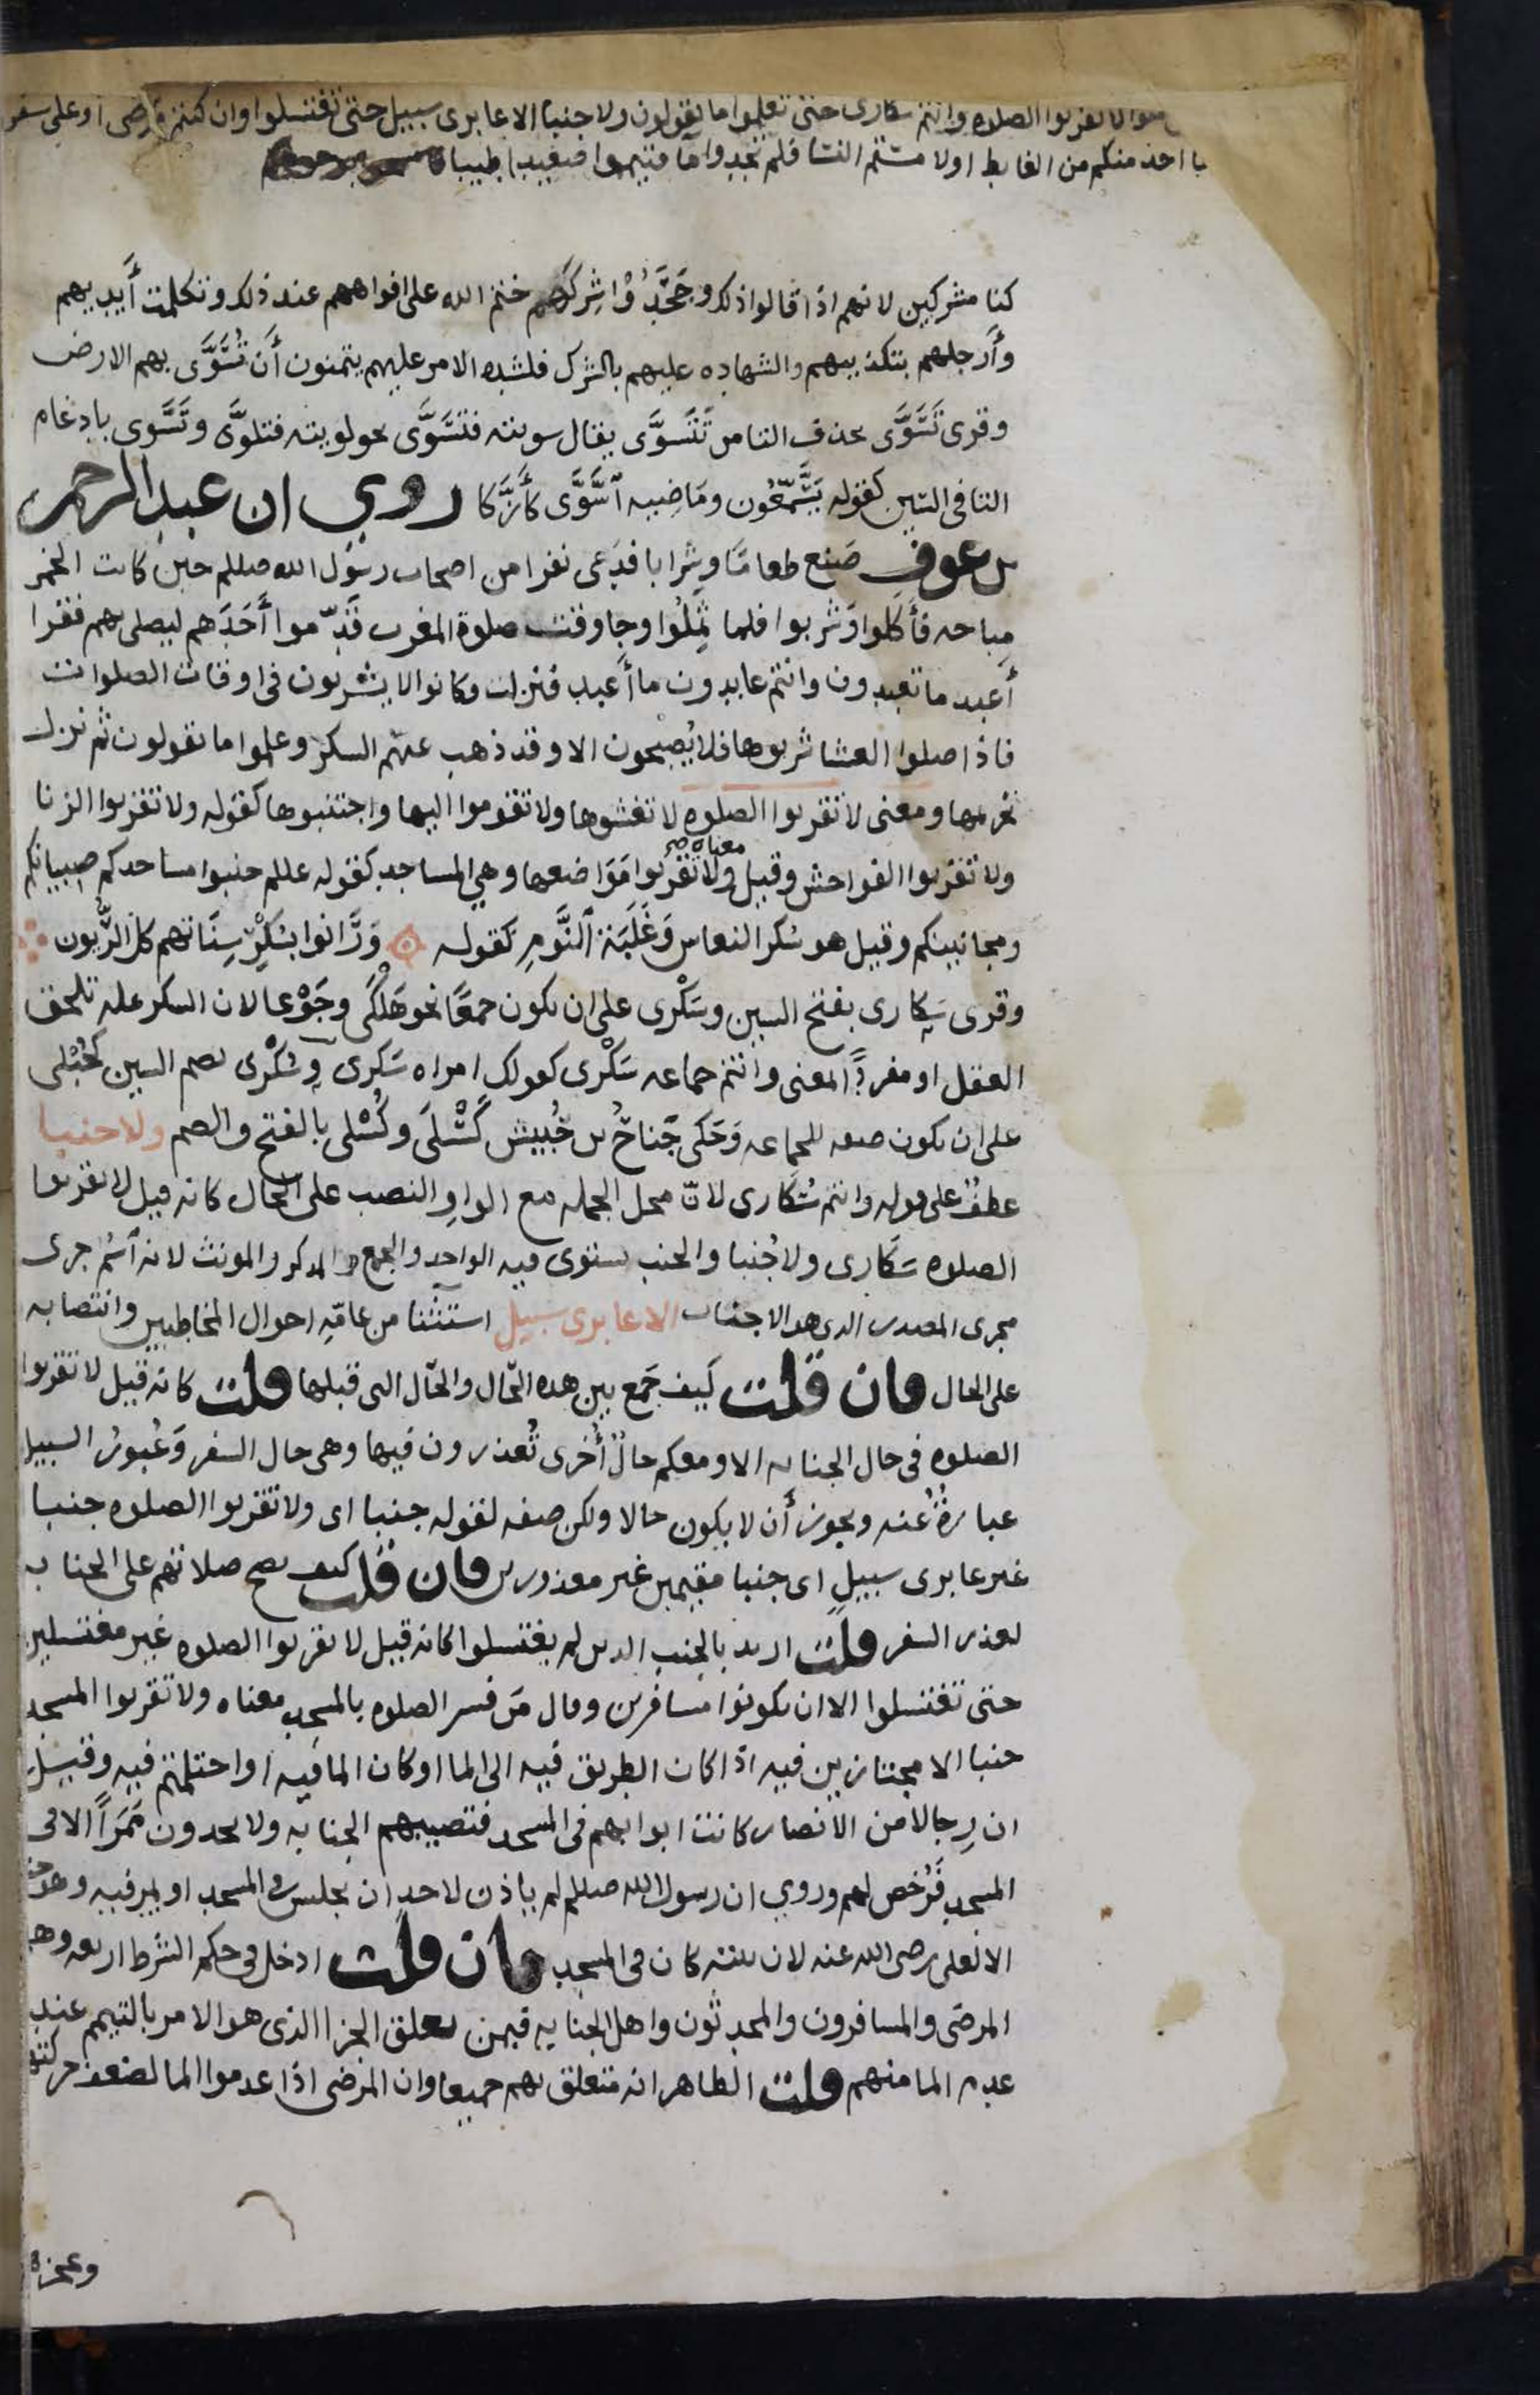 منوا لا تقربوا الصلاه وانتم سكارى حتى تعلموا ما تقولون ولا جنبا الا عابرى سبيل حتى تغتسلوا وان كنتم مرضى او على سفر
احد منكم من الغايط او لامستم النسا فلم تجدوا ما فتيمموا صعيدا طيبا
كنا مشركين لانهم اذا قالوا ذلك وجَحَدُوْا شِركهم ختم الله على افواههم عند ذلك وتكلمت أيديهم
وأرجلهم بتكذيبهم والشهاده عليهم بالشرك فلشده الامر عليهم يتمنون أن تُسَوَّى بهم الارض
وقرى تَسَوَّى بحذف التا من تَتَسوَّى يقال سويته فتسَوَّى نحو لويته فتلوَّى وتَسَّوى بادغام
التا فى السين كقوله يَسَّمَّعُون ومَاضِيه ٱسَّوَّى كأزَّكا روي ان عبد الرحمن
بن عوف صَنع طعامًا وشِرابا فدَعى نفرا من اصحاب رسول الله صللم حين كانت الخمر
مباحه فأكلوا وَشربوا فلما ثمِلُوا وجا وقت صلوة المغرب قدّموا أحَدَهم ليصلى بهم فقرا
أعبد ما تعبدون وانتم عابدون ما أعبد فنزلت وكانوا لا يشربون فى اوقات الصلوات
فاذا صلوا العشا شربوها فلا يُصبحون الا وقد ذهب عنهم السكر وعلموا ما تقولون ثم نزل
تحريمها ومعنى لا تقربوا الصلوه لا تغشوها ولا تقوموا اليها واجتنبوها كقوله ولا تقربوا الزنا
ولا تقربوا الفواحش وقيل معناه ولا تقربوا مَوَاضعها وهي المساجد كقوله عللم جنبوا مساجدكم صبيانكم
ومجانينكم وقيل هو سُكر النعاس وَغَلَبَة ٱلنَّومِ كقوله وَرَانوا بسُكرِ سِنَاتهم كل الرُّيون
وقرى سَكارى بفتح السين وسَكْرى على ان يكون جمعًا نحو هَلكَى وجَوْعا لان السكر عله تلحق
العقل او مفردًا المعنى وانتم جماعه سَكْرى كقولك امراه سَكرى وسُكْرى بضم السين كحُبْلى
على ان يكون صفه للجماعه وَحَكى جَناحُ بن حُبيش كَسْلَى وكُسْلى بالفتح والضم ولا جنبا
عطفٌ على قوله وانتم سُكارى لانّ محل الجمله مع الواوِ النصب على الحال كانه قيل لا تقربوا
الصلوه سَكارى ولا جُنبا والجنب يستوى فيه الواحد والجمع والمذكر والمونث لانه ٱسُم جرى
مجرى المصدر الذى هو الاجناب الا عابرى سبيل استثنا من عامّةِ احوال المخاطبين وانتصابه
على الحال فان قلت كيف جَمع بين هذه الحّال والحّال التى قبلها قلت كانه قيل لا تقربوا
الصلوه فى حال الجنابه الا ومعكم حالٌ أُخرى تُعذرون فيها وهى حال السفر وَعُبورُ السبيل
عبارةٌ عنه ويجوز أن لا يكون حالا ولكن صفه لقوله جنبا اى ولا تقربوا الصلوه جنبا
غير عابرى سبيلٍ اى جنبا مقيمين غير معذورين فان قلت كيف تصح صلاتهم على الجنابه
لعذر السفر قلت اريد بالجنب الذين لم يغتسلوا كانه قيل لا تقربوا الصلوه غير مغتسلين
حتى تغتسلوا الا ان تكونوا مسافرين وقال مَن فسر الصلوه بالمسجد معناه ولا تقربوا المسجد
جنبا الا مجتازين فيه اذا كان الطريق فيه الى الما او كان الما فيه او احتلمتم فيه وقيل
ان رِجالا من الانصار كانت ابوابهم فى المسجد فتصيبهم الجنابه ولا يجدون ممَرًا الا فى
المسجد فرُخص لهم وروي ان رسول الله صللم لم ياذن لاحد ان يجلس فى المسجد او يمر فيه وهو جنب
الا لعلى رضى الله عنه لان بيته كان فى المسجد فان قلت ادخل فى حكم الشرط اربعه وهم
المرضى والمسافرون والمحدثون واهل الجنابه فبمن تعلق الجزا الذى هو الامر بالتيمم عند
عدم الما منهم قلت الظاهر انه متعلق بهم جميعا وان المرضى اذا عدموا الما لضعف حركتهم
وعجزهم